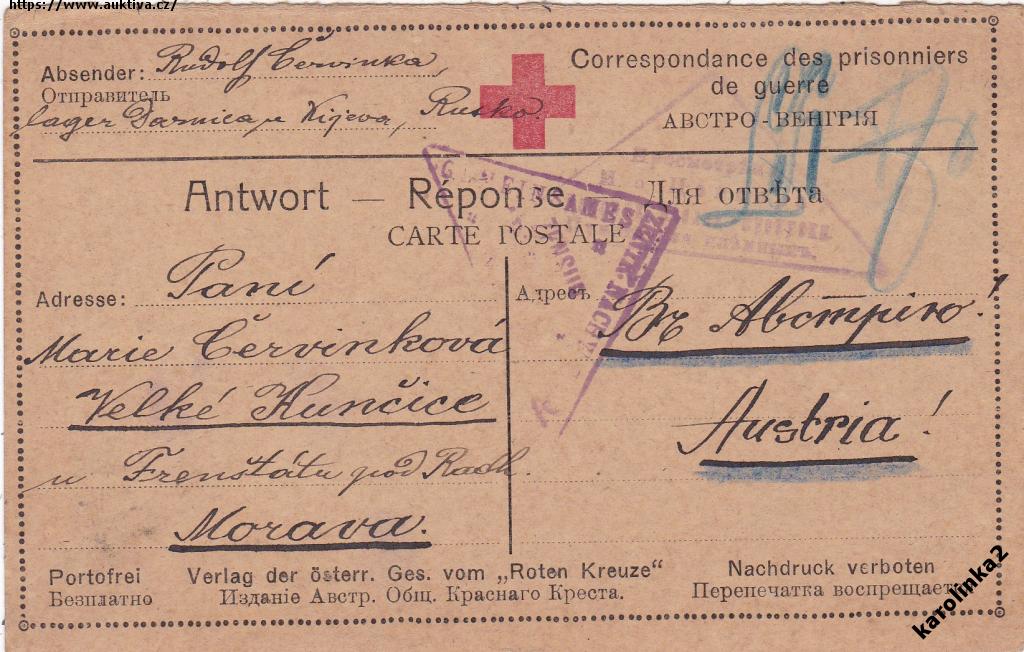 https://www.auktiva.cz/
Absender: Rudolf Červinka,
Отправитель
lager Darnica, u Kijeva, Rusko.
Correspondance des prisonniers
de guerre
АВСТРО-ВЕНГРІЯ
Antwort — Réponse — Для отвѣта
CARTE POSTALE
Adresse: Paní
Marie Červinková
Velké Kunčice
u Frenštátu pod Radh.
Morava.
Адресъ
Въ Австрію!
Austria!
GEMEINSAMES ZENTR. NACHW.
ZENSUR
Portofrei
Безплатно
Verlag der österr. Ges. vom „Roten Kreuze"
Изданіе Австр. Общ. Краснаго Креста.
Nachdruck verboten
Перепечатка воспрещает
karolinka2